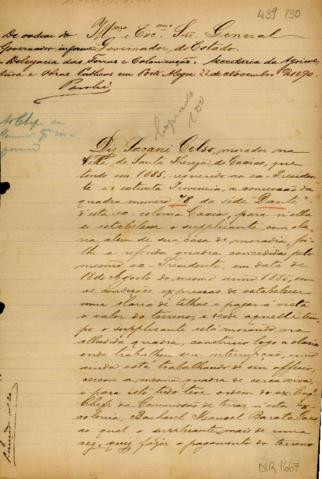 439 890
Illmo. Exc. mo Snr. General
De ordem do
Governador informe Governador do Estado.
a Delegacia das Terras e Colonização. Secretaria da Agricul
tura e Obras Publicas em Porto Alegre 22 de Novembro de 1890.
Ao Chefe da
Diz Sacani Celso, morador na
Villa de Santa Thereza de Caxias, que
tendo em 1885, requerido ao ex-Presiden
te da extinta Provincia, a concessão da
quadra numero "8 da séde Dante"
d'esta ex-colonia Caxias, para n'ella
se estabelecer o supplicante com ola
ria, alem de sua casa de moradia, foi
lhe a referida quadra concedida pelo
mesmo ex-Presidente, em data de
18 de Agosto do mesmo anno 1885, com
as condições expressas de estabelecer
uma olaria de telhas e pagar á vista
o valor do terreno, e desde aquelle tem
po o supplicante está morando na
alludida quadra, construio logo a olaria
onde trabalhou sem interrupção, como
ainda está trabalhando de seu officio,
cercou a mesma quadra de
e para isto tudo teve ordem do ex Engº
Chefe da Commissão de terras n'esta ex-
colonia, Bacharel Manoel Barata Goes
ao qual o supplicante mais de uma
vez, quiz fazer o pagamento do terreno
NR 1667